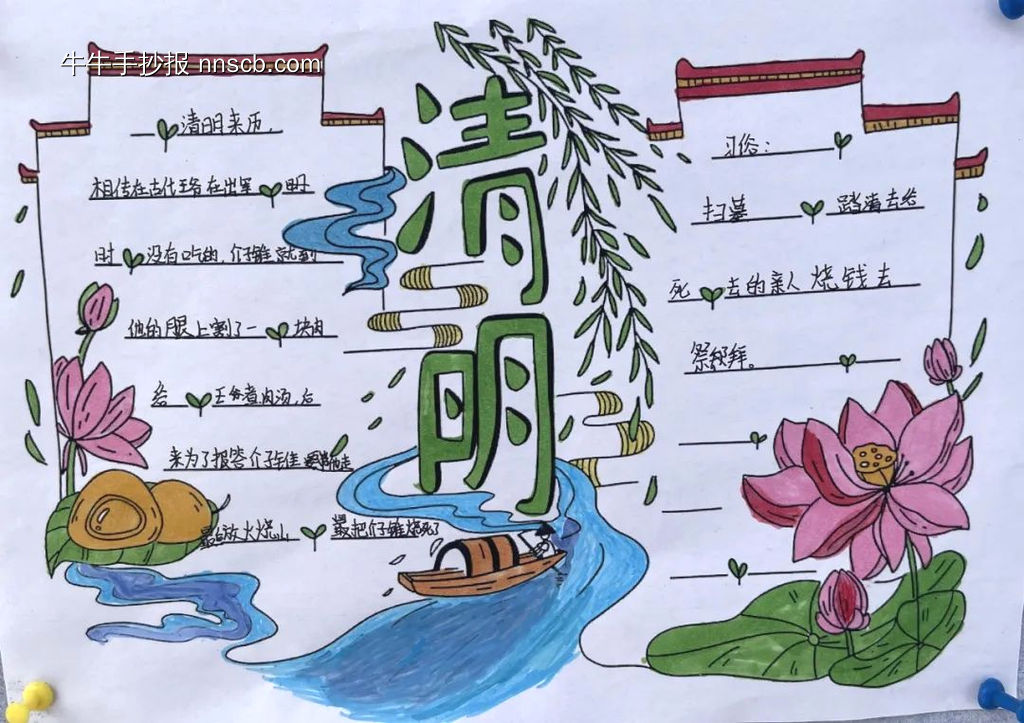 牛牛手抄报 nnscb.com
清明
清明来历,
相传在古代王各在出军
时没有吃的,介子锥就割
他的腿上割了一块肉
给王各煮肉汤,后
来为了报答介子锥
最后放火烧山最把介子锥烧死了
习俗:
扫墓踏清去给
死去的亲人烧钱去
祭拜。